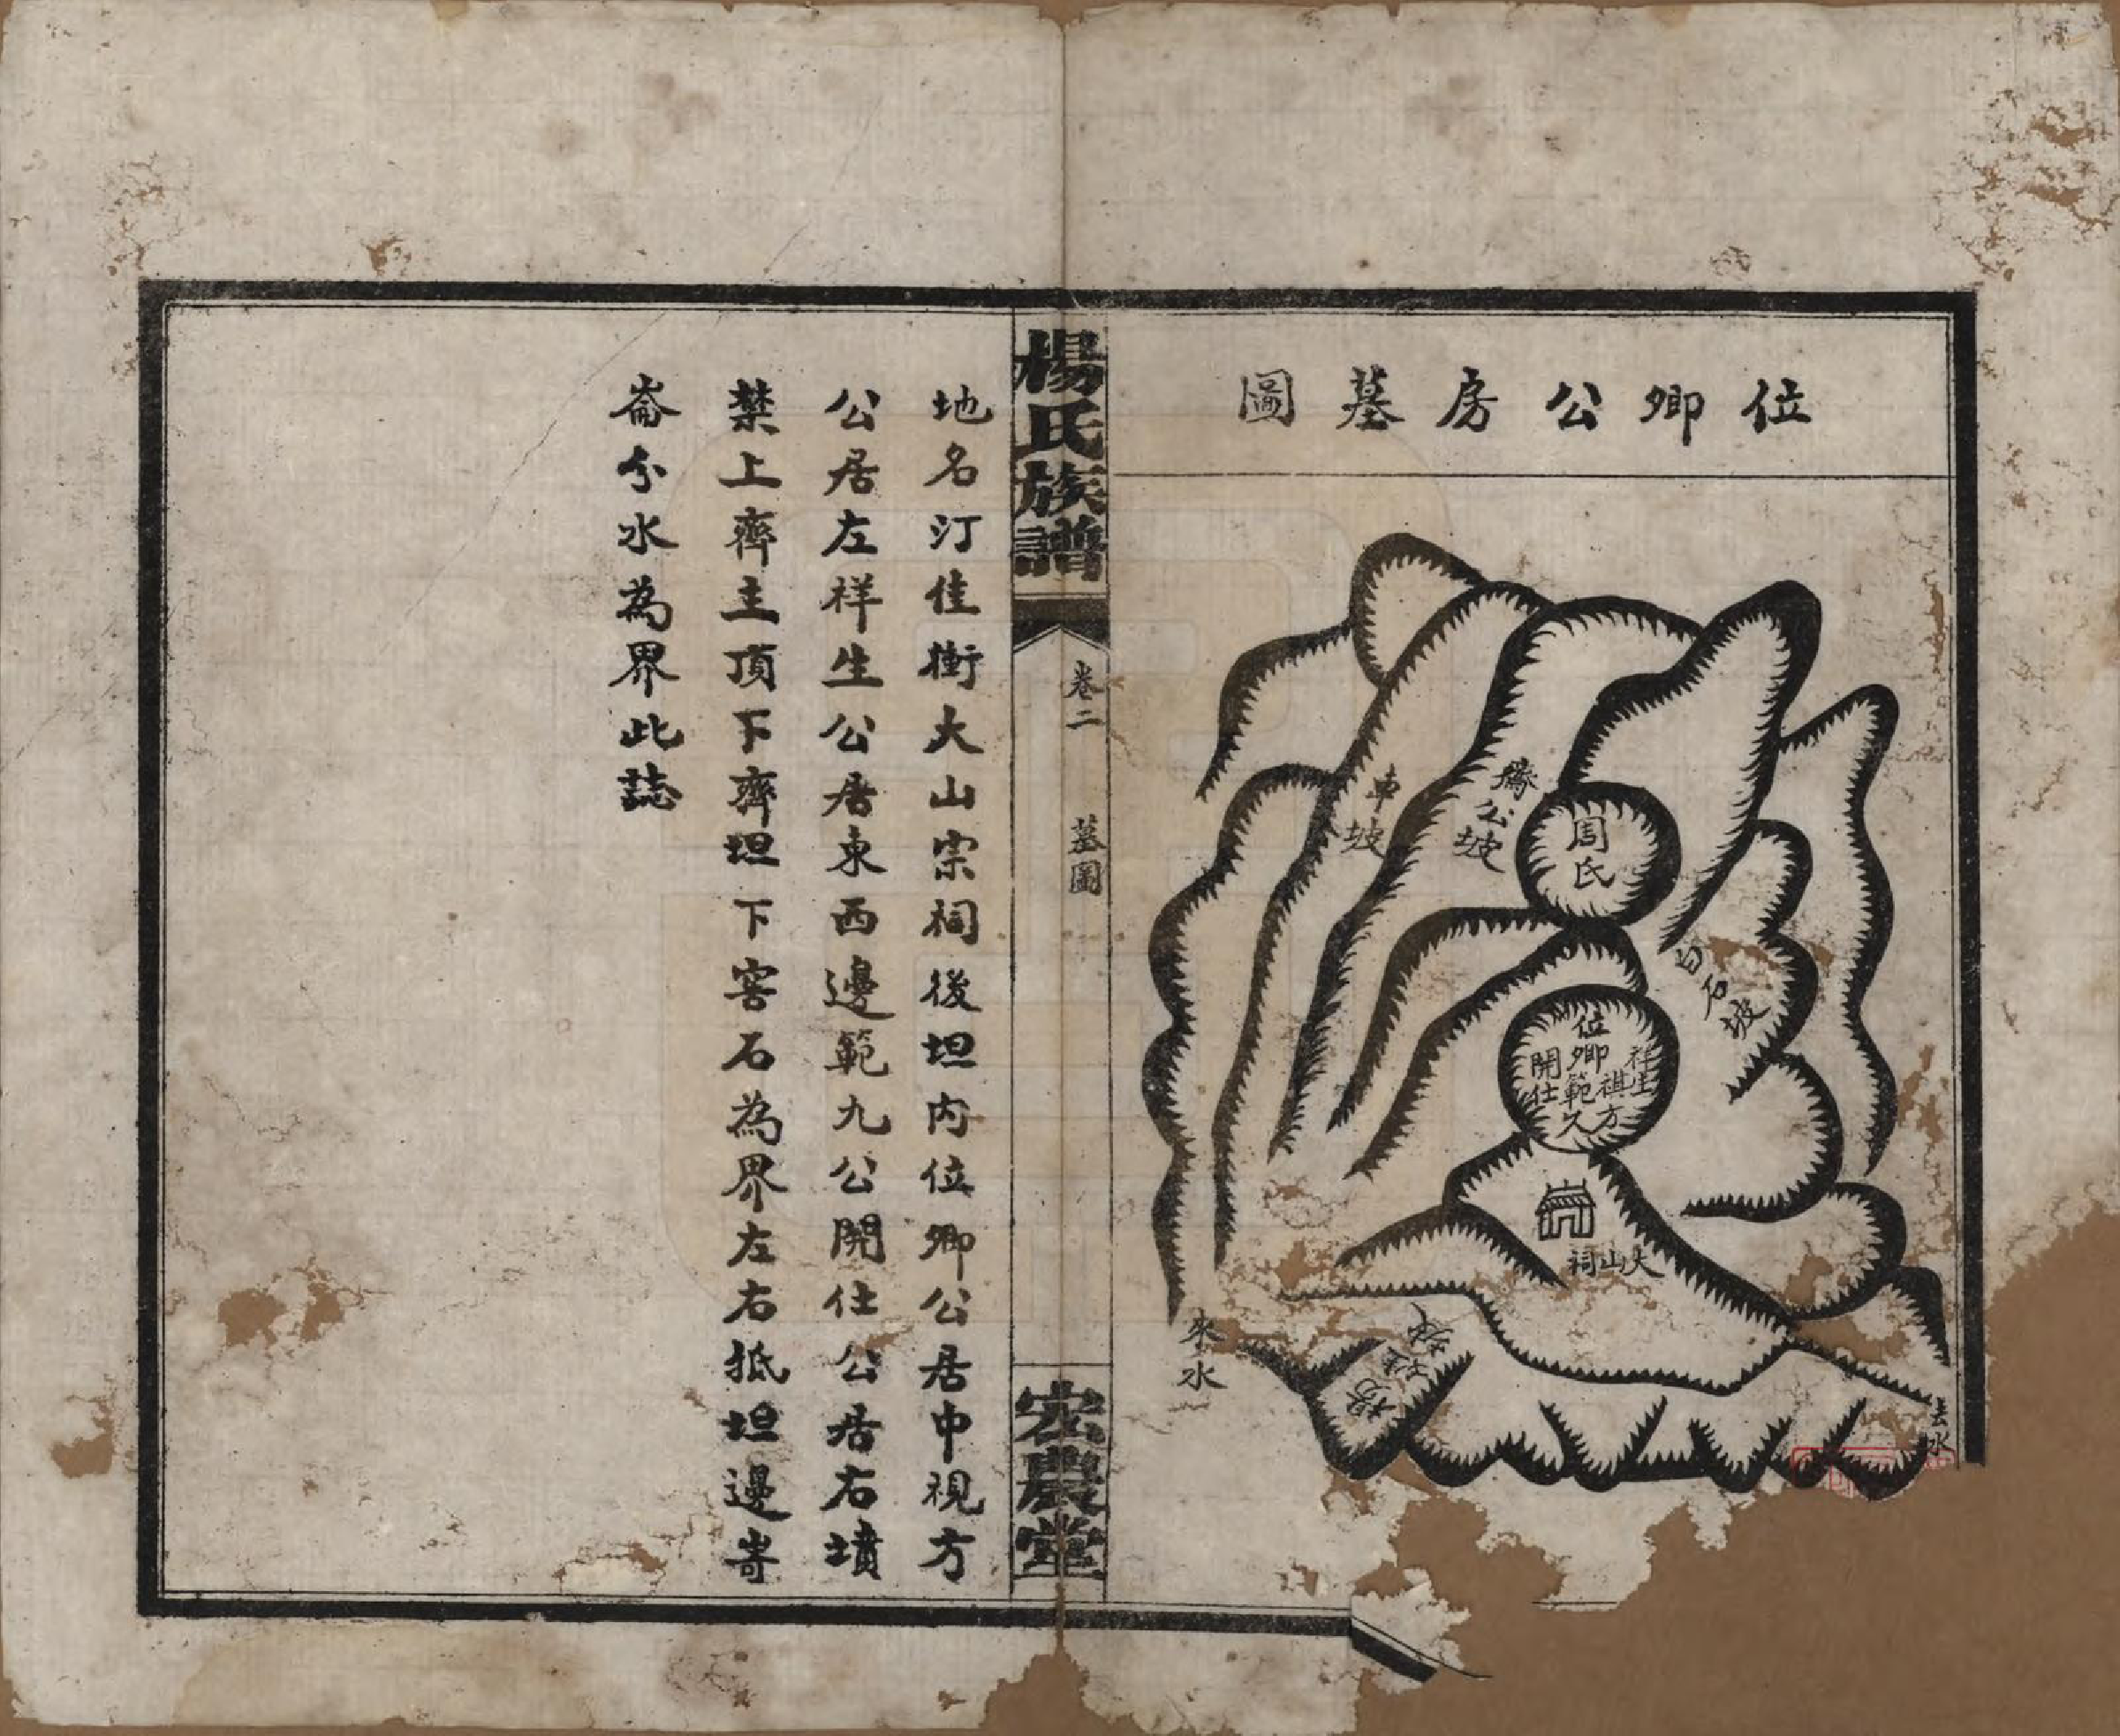 位卿公房墓圖
車坡
公坡
周氏
白石坡
祥生
祺方
位卿範久
開仕
大山祠
來水
去水
楊氏族譜
卷二
墓圖
宏農堂
地名汀佳衝大山宗祠後坦內位卿公居中視方
公居左祥生公居東西邊範九公開仕公居右墳
禁上齊主頂下齊坦下窖石為界左右抵坦邊岢
崙分水為界此誌